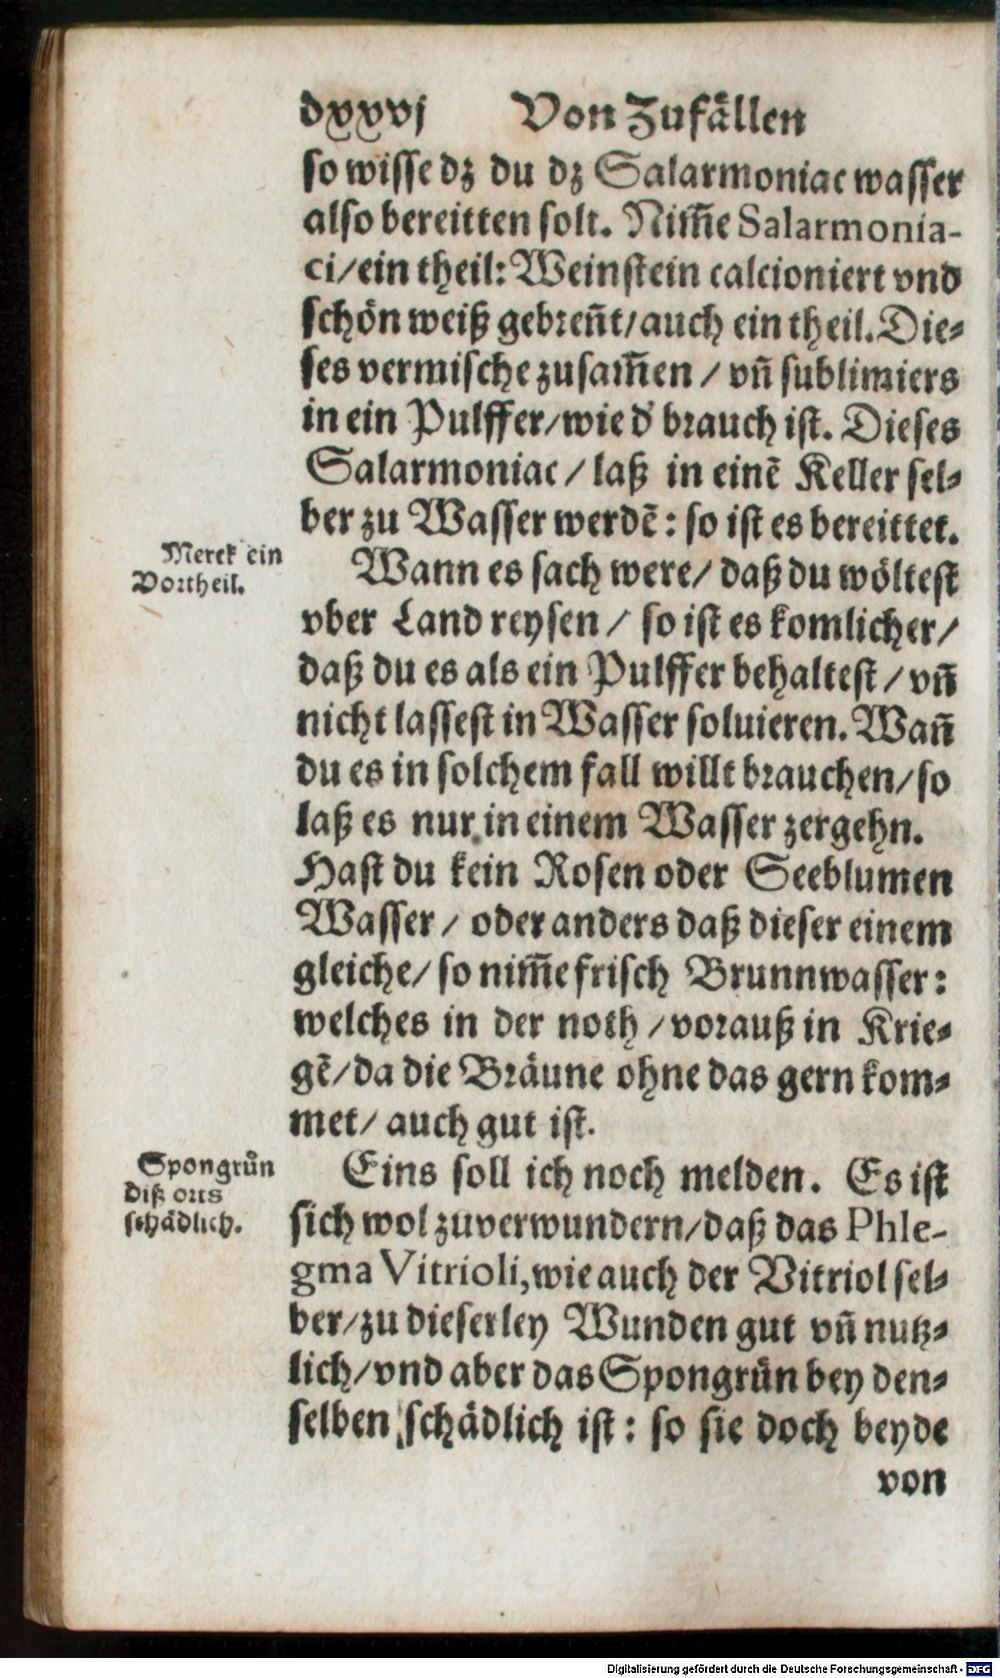 dxxvj Von Zufaͤllen
so wisse dz du dz Salarmoniac wasser
also bereitten solt. Nim̃e Salarmonia-
ci/ein theil: Weinstein calcioniert vnd
schoͤn weiß gebren̄t/auch ein theil. Die-
ses vermische zusam̃en / vn̄ sublimiers
in ein Pulffer/wie d' brauch ist. Dieses
Salarmoniac / laß in einẽ Keller sel-
ber zu Wasser werdẽ: so ist es bereittet.
Merck ein
Vortheil.
Wann es sach were/ daß du woͤltest
vber Land reysen / so ist es komlicher/
daß du es als ein Pulffer behaltest / vn̄
nicht lassest in Wasser soluieren. Wan̄
du es in solchem fall willt brauchen/so
laß es nur in einem Wasser zergehn.
Hast du kein Rosen oder Seeblumen
Wasser / oder anders daß dieser einem
gleiche/ so nim̃e frisch Brunnwasser:
welches in der noth / vorauß in Krie-
gẽ/da die Braͤune ohne das gern kom-
met/ auch gut ist.
Spongruͤn
diß orts
schaͤdlich.
Eins soll ich noch melden. Es ist
sich wol zuverwundern/daß das Phle-
gma Vitrioli,wie auch der Vitriol sel-
ber/zu dieserley Wunden gut vn̄ nutz-
lich/vnd aber das Spongruͤn bey den-
selben schaͤdlich ist: so sie doch beyde
von
Digitalisierung gefördert durch die Deutsche Forschungsgemeinschaft - DFG